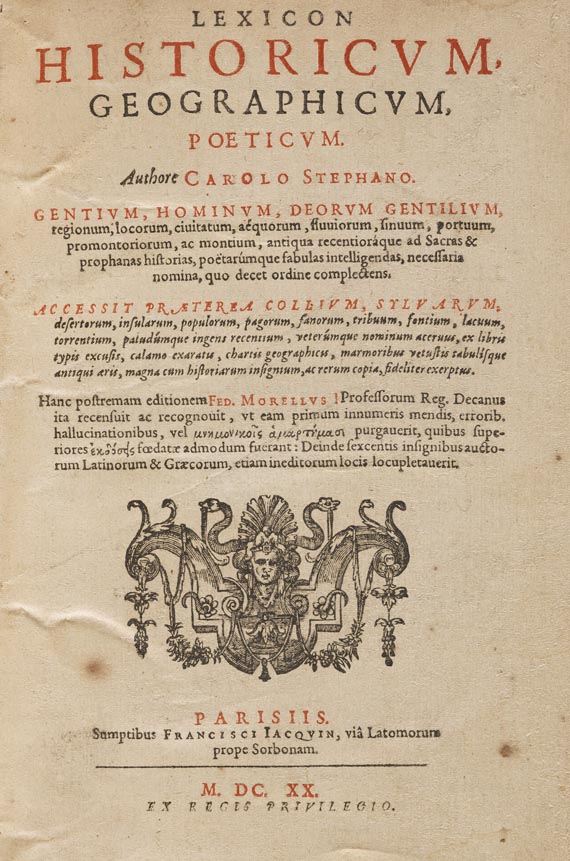 LEXICON
HISTORICVM,
GEOGRAPHICVM,
POETICVM.
Authore CAROLO STEPHANO.
GENTIVM, HOMINVM, DEORVM GENTILIVM,
regionum, locorum, ciuitatum, aéquorum, fluuiorum, sinuum, portuum,
promontoriorum, ac montium, antiqua recentioráque ad Sacras &
prophanas historias, poëtarúmque fabulas intelligendas, necessaria
nomina, quo decet ordine complectens.
ACCESSIT PRÆTEREA COLLIVM, SYLVARVM,
desertorum, insularum, populorum, pagorum, fanorum, tribuum, fontium, lacuum,
torrentium, paludúmque ingens recentium, veterúmque nominum aceruus, ex libris
typis excusis, calamo exaratis, chartis geographicis, marmoribus vetustis tabulísque
antiqui æris, magna cum historiarum insignium, ac rerum copia, fideliter exerptus.
Hanc postremam editionem FED. MORELLVS Professorum Reg. Decanus
ita recensuit ac recognouit, vt eam primum innumeris mendis, errorib.
hallucinationibus, vel μνημονικοῖς ἁμαρτήμασι purgauerit, quibus supe-
riores ἐκδόσεις fœdatæ admodum fuerant: Deinde sexcentis insignibus aucto-
rum Latinorum & Græcorum, etiam ineditorum locis locupletauerit.
PARISIIS.
Sumptibus FRANCISCI IACQVIN, viâ Latomorum
prope Sorbonam.
M. DC. XX.
EX REGIS PRIVILEGIO.